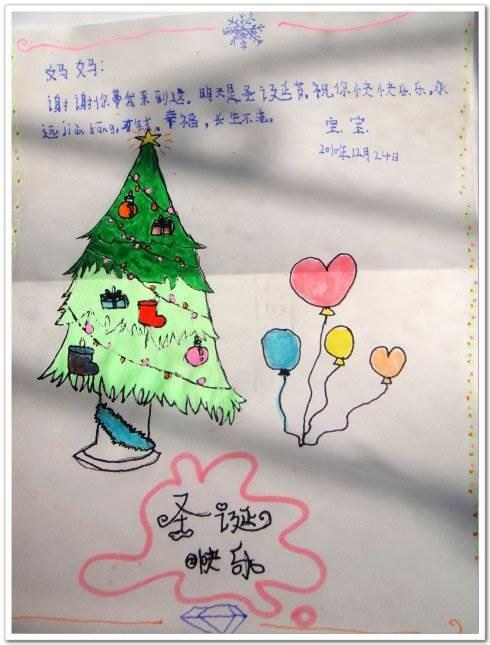 妈妈:
谢谢你带我来到这。明天是圣诞节,祝你快快乐乐,永
远jian kang,有钱。幸福,长生不老。
宝宝
2010年12月24日
圣诞
快乐